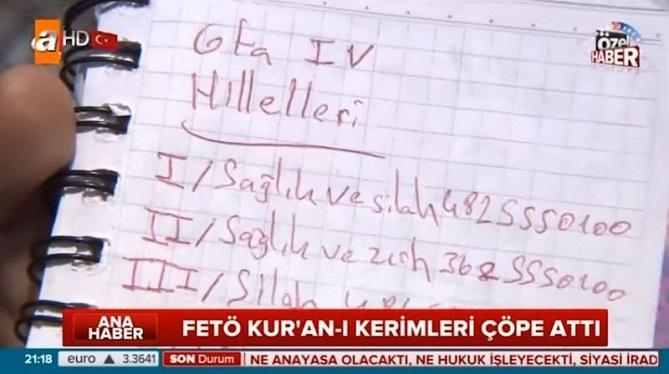 a HD
ÖZEL HABER
Gta IV
Hillelleri
I/Sağlık ve silah 482 555 0100
II/Sağlık ve zırh 362 555 0100
III/Silah
ANA HABER
FETÖ KUR'AN-I KERİMLERİ ÇÖPE ATTI
21:18 euro ▲ 3.3641 SON Durum NE ANAYASA OLACAKTI, NE HUKUK İŞLEYECEKTİ, SİYASİ İRAD